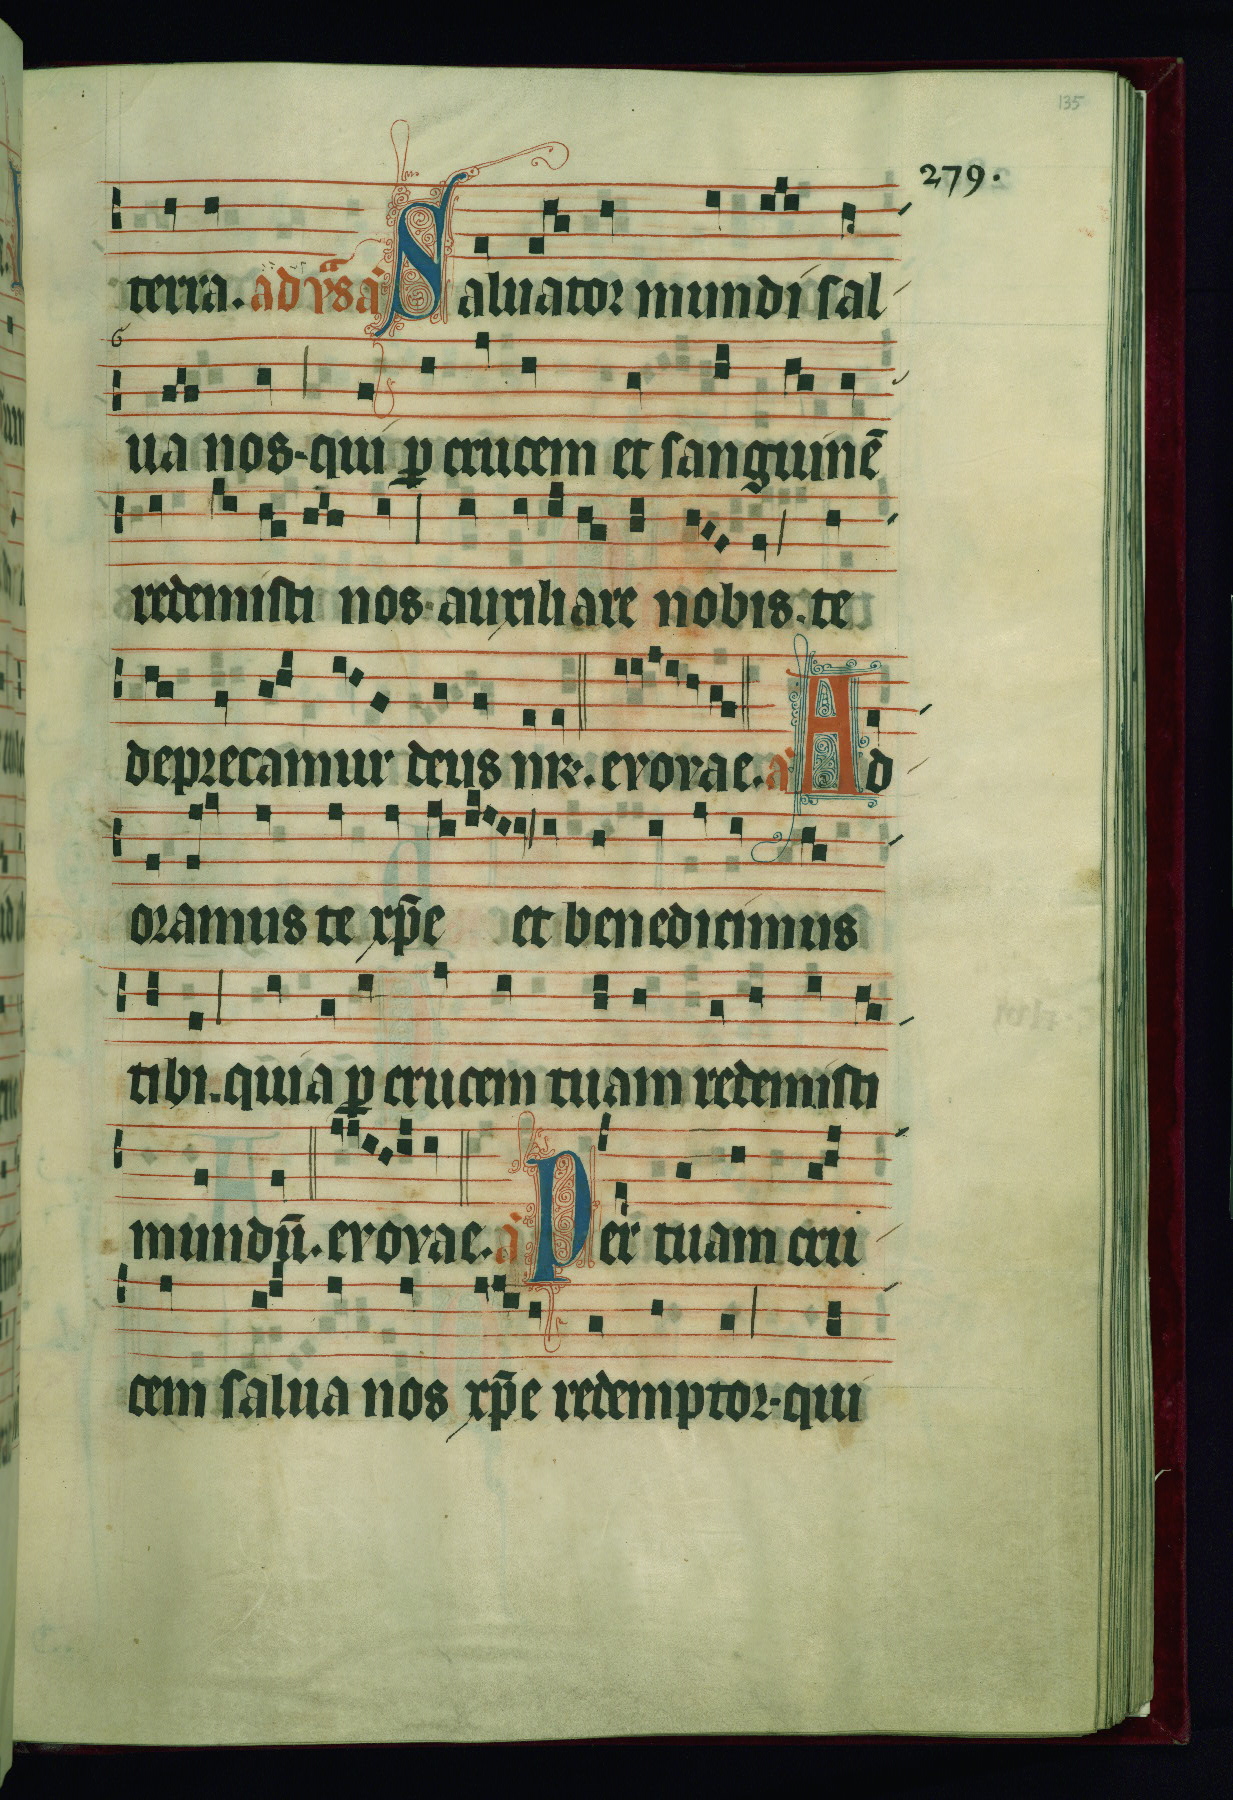 135
279.
terra. ad vs̃s a Saluator mundi sal
ua nos. qui ꝑ crucem et sanguinē
redemisti nos. auxiliare nobis. te
deprecamur deus nr̄. evovae. a Ad
oramus te xp̄e et benedicimus
tibi. quia ꝑ crucem tuam redemisti
mundū. evovae. a Per tuam cru
cem salua nos xp̄e redemptor. qui